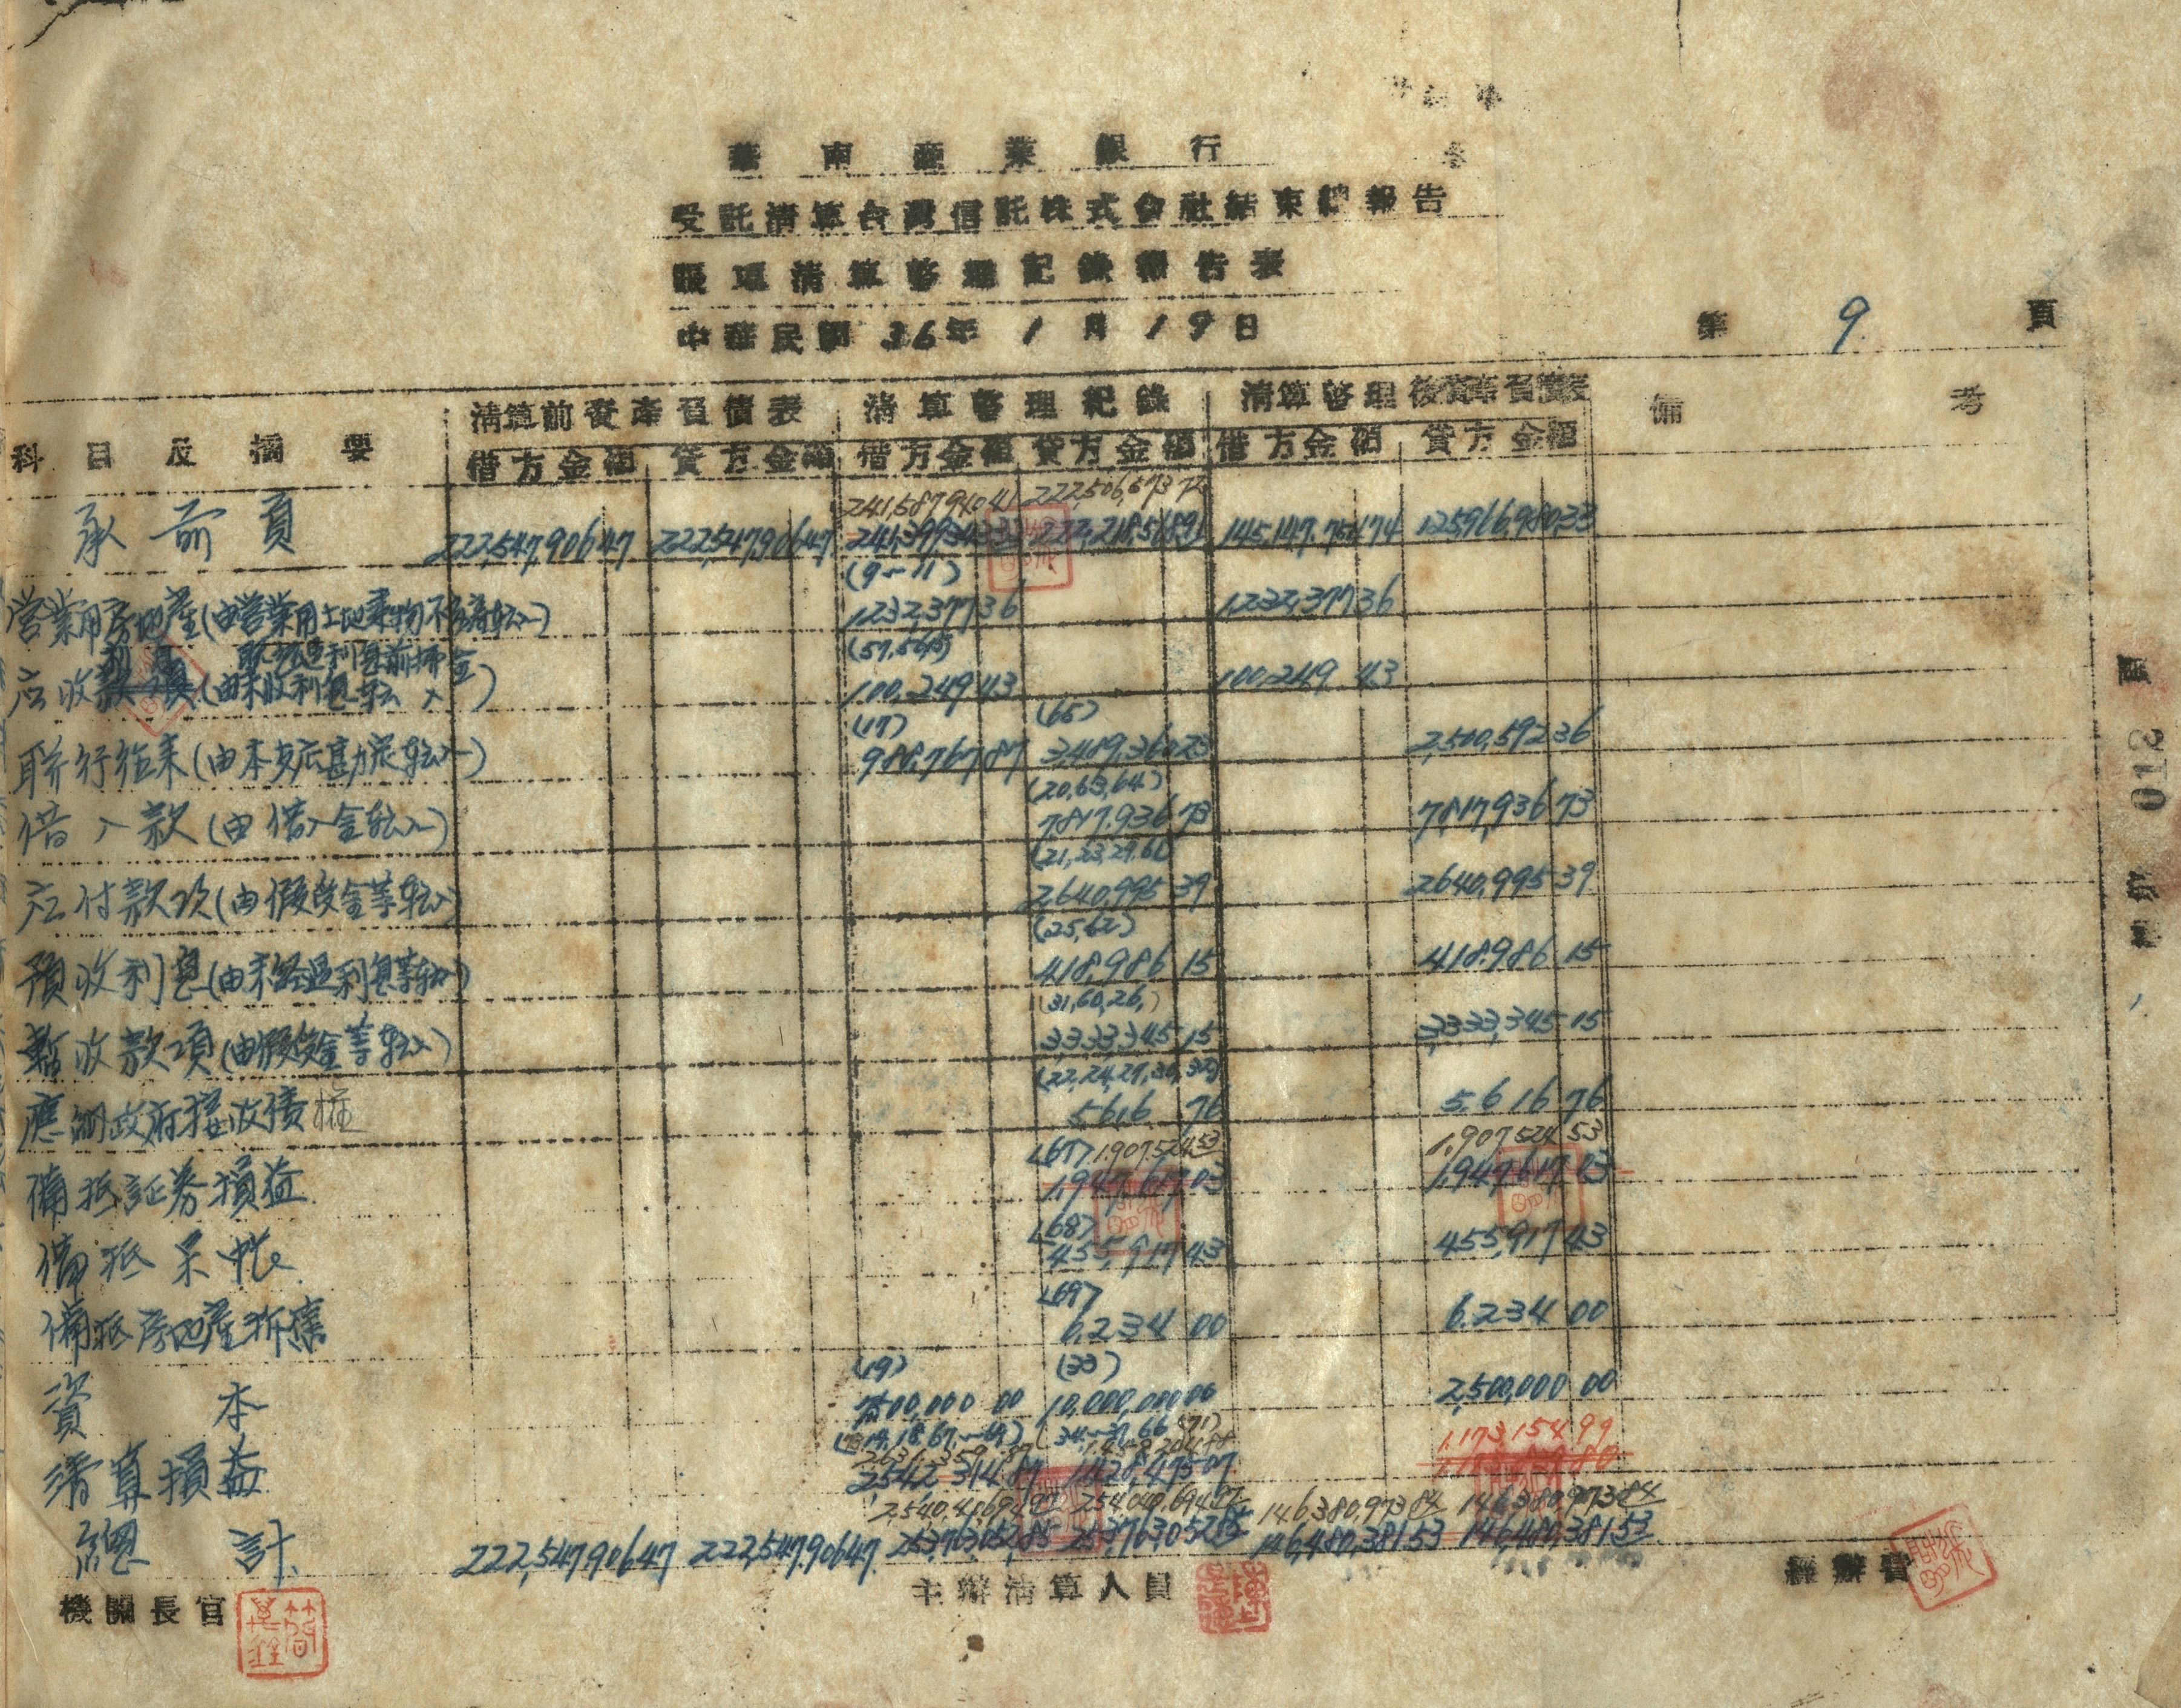 華南商業銀行
受託清算台灣信託株式會社結束總報告
賬項清算整理記錄報告表
中華民國 36年 1月 19日
第 9. 頁
科目及摘要 清算前資產負債表 清算整理紀錄 清算整理後資產負債表 備考
借方金額 貸方金額 借方金額 貸方金額 借方金額 貸方金額
241,587,940 41 222,506,573 72
承前頁 222,547,906 47 222,547,906 47 145,147,751 74 125,916,980 33
(9~11)
營業用房地產(由營業用土地建物不動產轉入) 1,232,377 36 1,232,377 36
(57,58)
利息 未經過利息前拂金
应收款項(由未收利息轉入) 100,249 43 100,249 43
(17) (65)
聯行往来(由本支店勘定轉入) 988,767 87 3,489,360 23 2,500,592 36
(20,63,64)
借入款(由借入金轉入) 7,817,936 73 7,817,936 73
(21,23,29,61)
应付款項(由假受金等轉入) 2,640,995 39 2,640,995 39
(25,62)
預收利息(由未經過利息等轉入) 418,986 15 418,986 15
(31,60,26,)
暫收款項(由假受金等轉入) 3,333,345 15 3,333,345 15
應納政府接收債権 5,616 76 5,616 76
<67> 1,907,524 53 1,907,524 53
備抵証券損益 1,947,617 03 1,947,617 03
<68>
備抵呆帐 455,917 43 455,917 43
<69>
備抵房地產折舊 6,234 00 6,234 00
(19) (33)
資本 7,500,000 00 10,000,000 00 2,500,000 00
1,173,154 99
清算損益
254,048,694 97 254,048,694 97 146,380,973 84 146,380,973 84
總計 222,547,906 47 222,547,906 47 253,763,052 85 253,763,052 85 146,480,381 53 146,480,381 53
機關長官 主辦清算人員 經辦員
頁 012